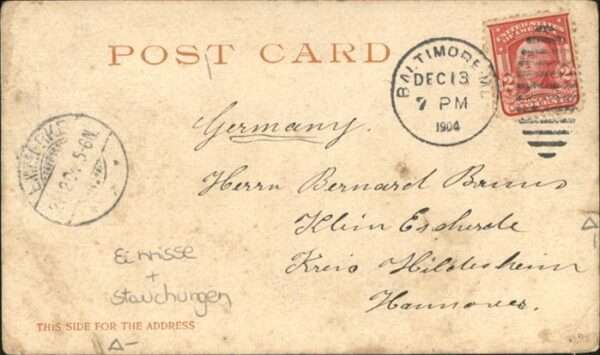 POST CARD
BALTIMORE, MD.
DEC 13
7 PM
1904
UNITED STATES OF AMERICA
2 2
5-6N
Germany.
Herrn Bernard Bruns
Klein Escherde
Kreis Hildesheim
Hannover.
Einrisse
+
Stauchungen
THIS SIDE FOR THE ADDRESS